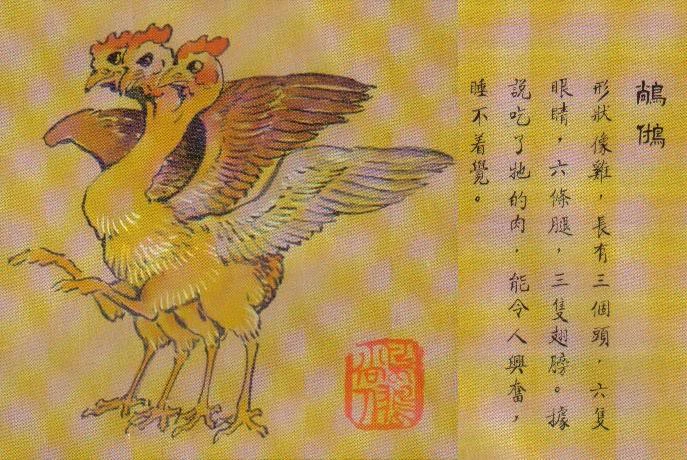 形狀像雞,長有三個頭,六隻
眼睛,六條腿,三隻翅膀。據
說吃了牠的肉,能令人興奮,
睡不着覺。